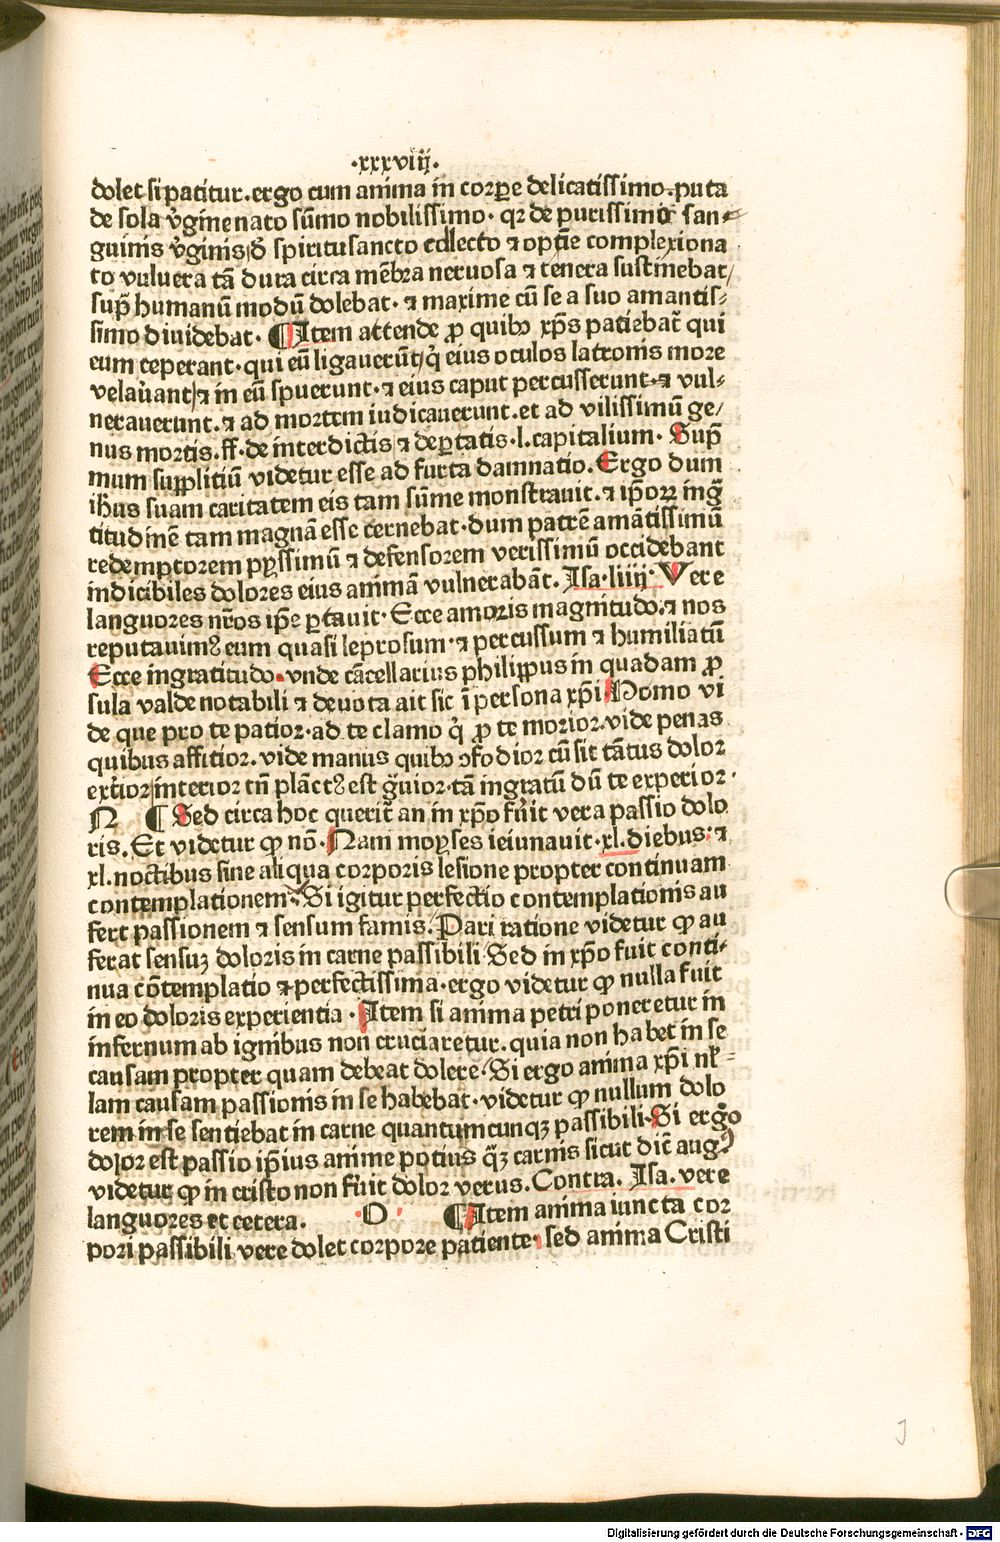 ·xxxviij·
dolet si patitur. ergo cum anima in corꝑe delicatissimo. puta
de sola v̓gine nato sūmo nobilissimo· qꝛ de purissimis san
guinis v̓ginis/đ spiritusancto collecto ⁊ optīe complexiona
to vulnera tā dura circa mēbra neruosa ⁊ tenera sustinebat/
sup̄ humanū modū dolebat· ⁊ maxime cū se a suo amantis⸗
simo diuidebat. ¶ Item attende ꝓ quibꝫ xp̄s patiebat̄ qui
eum ceperant· qui eū ligauerūt/q̇ eius oculos latronis more
velau̓ant/⁊ in eū spuerunt·⁊ eius caput percusserunt·⁊ vul⸗
nerauerunt.⁊ ad mortem iudicauerunt.et ad vilissimū ge/
nus mortis.ff·de interdictis ⁊ deꝑtatis·l.capitalium· Sup̄
mum supplitiū videtur esse ad furta damnatio. Ergo dum
ihūs suam caritatem eis tam sūme monstrauit.⁊ ip̄oꝝ ing̃
titudinē tam magnā esse cernebat·dum patrē amātissimū
redemptorem pijssimū ⁊ defensorem verissimū occidebant
indicibiles dolores eius animā vulnerabāt. Isa·liiij· Vere
languores nr̄os ip̄e ꝑtauit· Ecce amoris magnitudo.⁊ nos
reputauimꝰ eum quasi leprosum·⁊ percussum ⁊ humiliatū
Ecce ingratitudo.vnde cācellarius philippus in quadam ꝓ
sula valde notabili ⁊ deuota ait sic ī persona xp̄i Homo vi
de que pro te patior·ad te clamo q̇ ꝓ te morior.vide penas
quibus affitior.vide manus quibꝫ ↄfodior cū sit tātus dolor
ext̓ior/interior tn̄ plāctꝰ est g̃uior·tā ingratū dū te experior·
N ¶ Sed circa hoc querit̄ an in xp̄o fu̓it vera passio dolo
ris. Et videtur ꝙ nō. Nam moyses ieiunauit·xl.diebus:⁊
xl.noctibus sine aliqua corporis lesione propter continuam
contemplationem· Si igitur perfectio contemplationis au
fert passionem ⁊ sensum famis. Pari ratione videtur ꝙ au
ferat sensuꝫ doloris in carne passibili Sed in xp̄o fuit conti⸗
nua cōtemplatio ⁊ perfectissima·ergo videtur ꝙ nulla fuit
in eo doloris experientia · Item si anima petri poneretur in
infernum ab ignibus non cruciaretur.quia non habet in se
causam propter quam debeat dolere· Si ergo anima xp̄i nł⸗
lam causam passionis in se habebat·videtur ꝙ nullum dolo
rem in se sentiebat in carne quantumcunqꝫ passibili. Si ergo
dolor est passio ip̄ius anime potius q̄ꝫ carnis sicut dic̄t augꝰ
videtur ꝙ in cristo non fu̓it dolor verus. Contra. Isa. vere
languores et cetera. ·O· ¶ Item anima iuncta cor
pori passibili vere dolet corpore patiente· sed anima Cristi
J
Digitalisierung gefördert durch die Deutsche Forschungsgemeinschaft - DFG